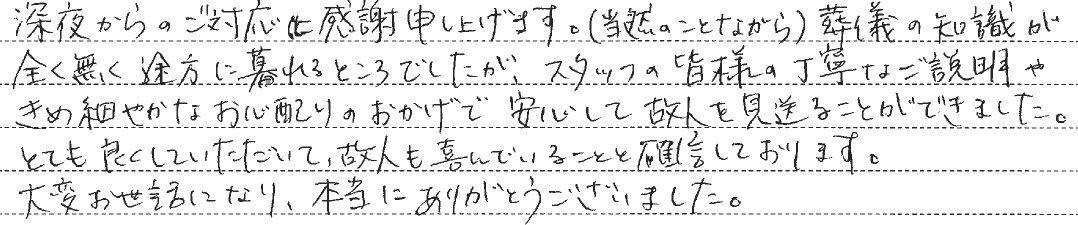 深夜からのご対応に感謝申し上げます。(当然のことながら)葬儀の知識が
全く無く途方に暮れるところでしたが、スタッフの皆様の丁寧なご説明や
きめ細やかなお心配りのおかげで安心して故人を見送ることができました。
とても良くしていただいて、故人も喜んでいることと確信しております。
大変お世話になり、本当にありがとうございました。